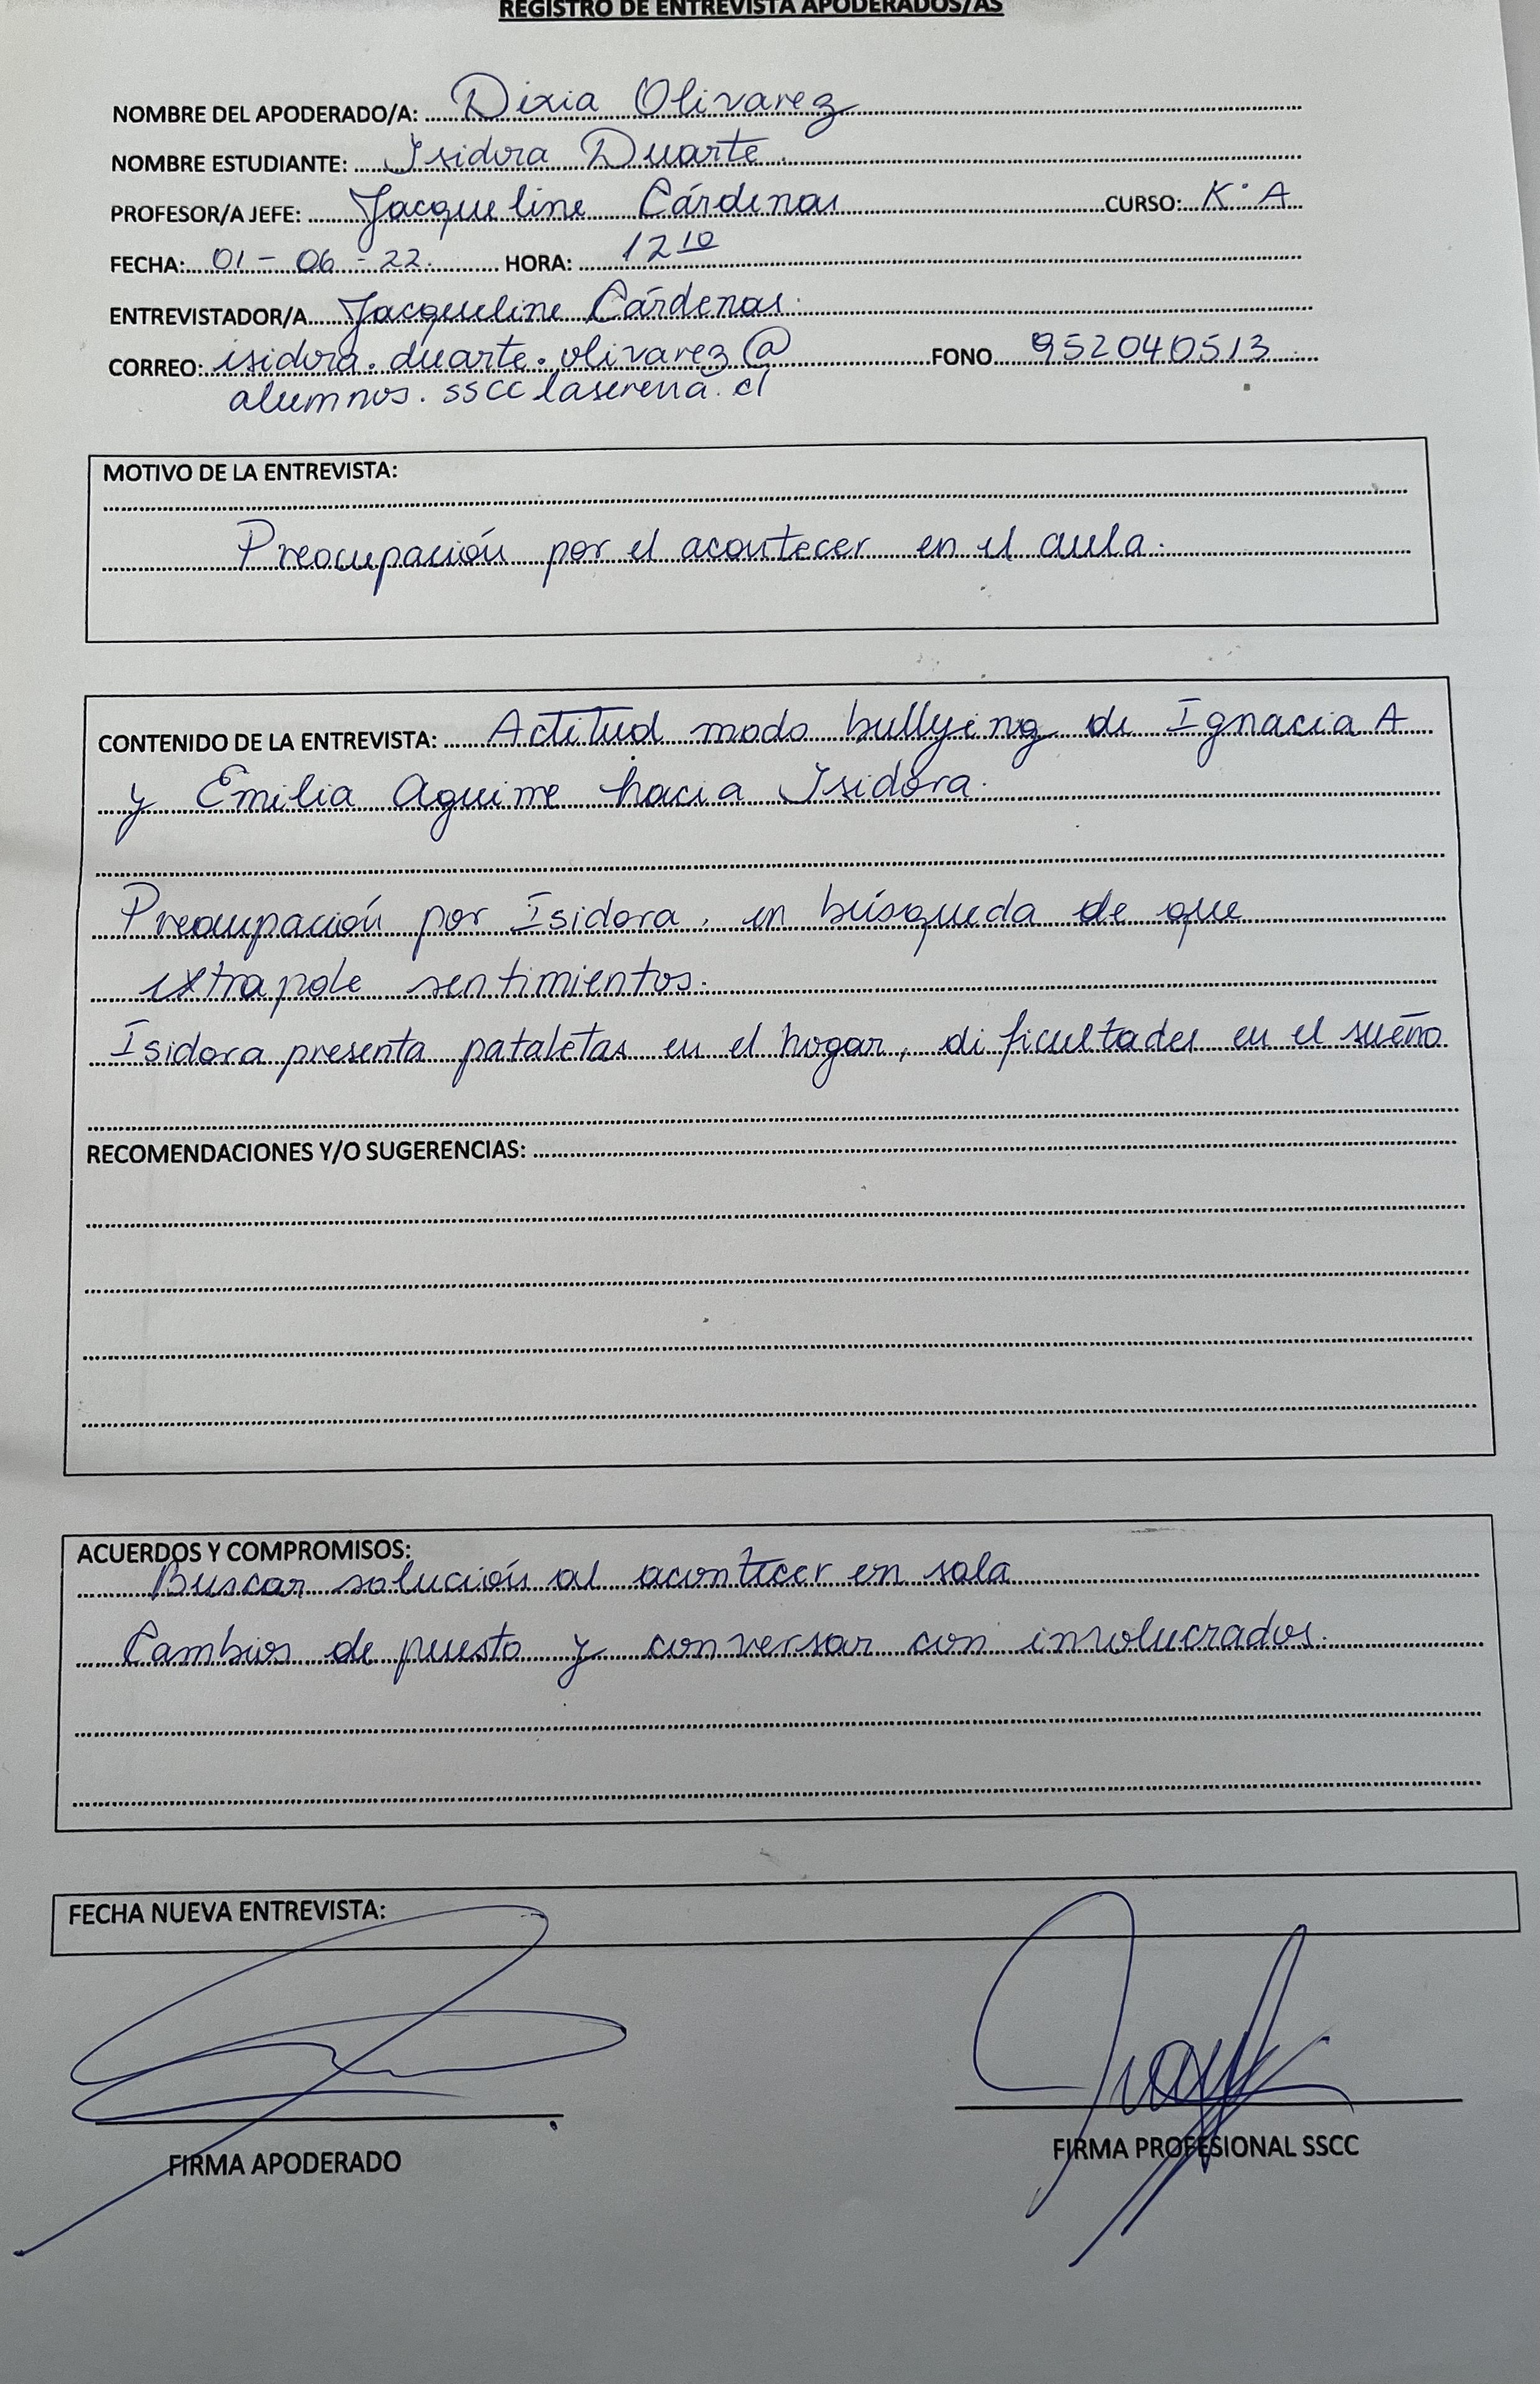 REGISTRO DE ENTREVISTA APODERADOS/AS
NOMBRE DEL APODERADO/A: Dixia Olivarez
NOMBRE ESTUDIANTE: Isidora Duarte
PROFESOR/A JEFE: Jacqueline Cárdenas CURSO: K°A
FECHA: 01-06-22. HORA: 12 10
ENTREVISTADOR/A Jacqueline Cárdenas.
CORREO: isidora.duarte.olivarez@ FONO 952040513
alumnos.sscclaserena.cl
MOTIVO DE LA ENTREVISTA:
Preocupación por el acontecer en el aula.
CONTENIDO DE LA ENTREVISTA: Actitud modo bullying de Ignacia A
y Emilia Aguirre hacia Isidora.
Preocupación por Isidora, en búsqueda de que
extrapole sentimientos.
Isidora presenta pataletas en el hogar, dificultades en el sueño
RECOMENDACIONES Y/O SUGERENCIAS:
ACUERDOS Y COMPROMISOS:
Buscar solución al acontecer en sala
Cambios de puesto y conversar con involucrados.
FECHA NUEVA ENTREVISTA:
FIRMA APODERADO FIRMA PROFESIONAL SSCC